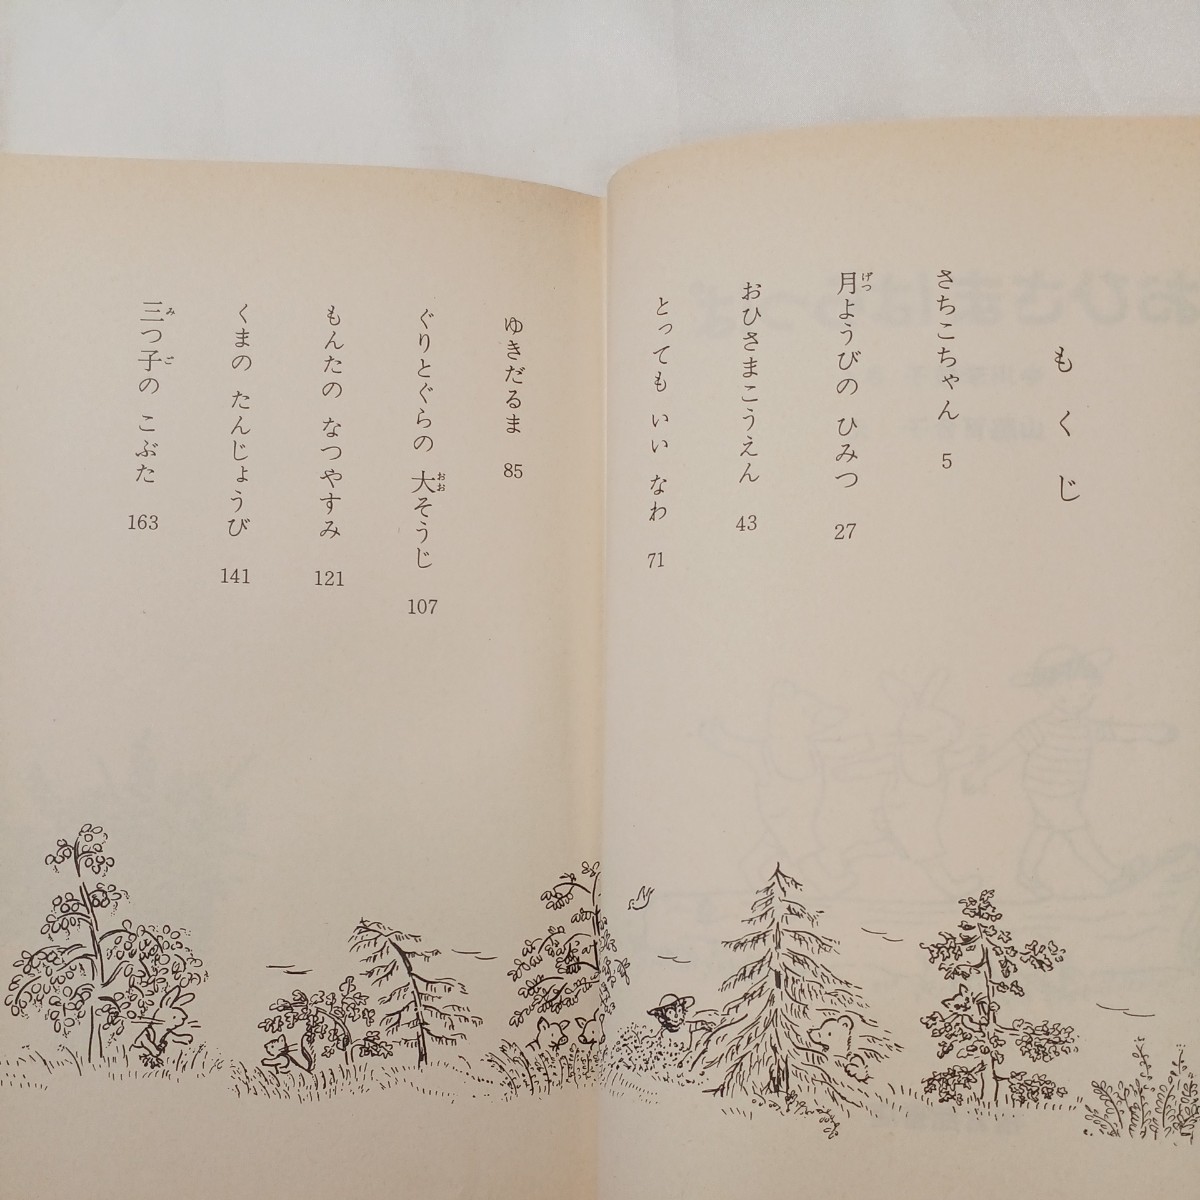 もくじ
さちこちゃん 5
月ようびの ひみつ 27
おひさまこうえん 43
とっても いい なわ 71
ゆきだるま 85
ぐりとぐらの 大そうじ 107
もんたの なつやすみ 121
くまの たんじょうび 141
三つ子の こぶた 163